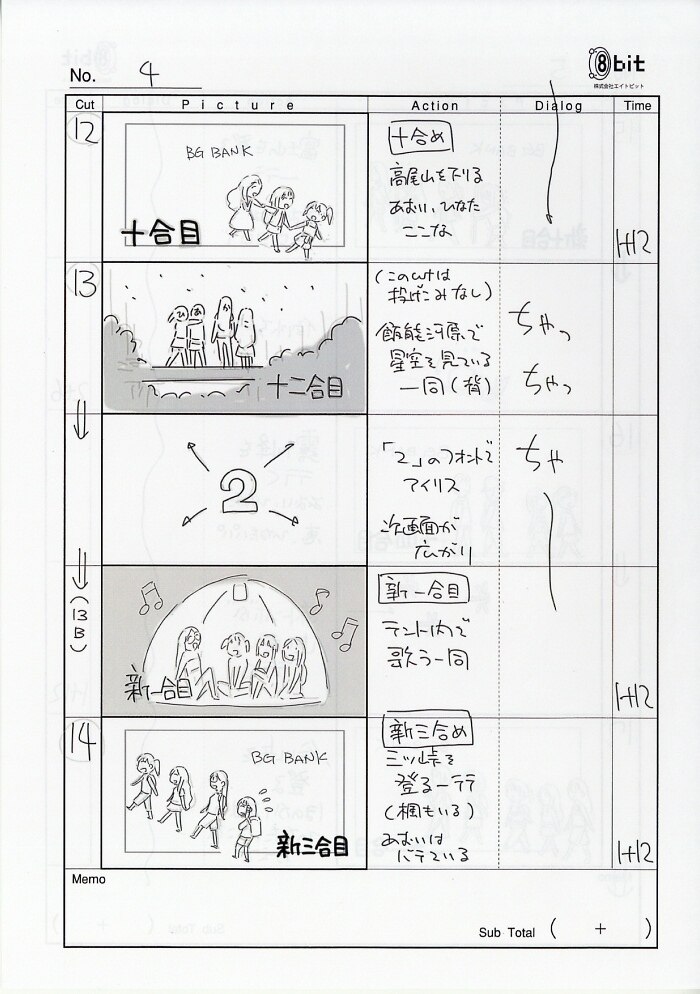 No. 4
8bit
株式会社エイトビット
Cut Picture Action Dialog Time
12
BG BANK
十合目
十合め
高尾山を下りる
あおい、ひなた
ここな
1+12
13
十二合目
(このcutは
投げこみなし)
飯能河原で
星空を見ている
一同(背)
ちゃっ
ちゃっ
2
「2」のフォントで
アイリス
次画面が
広がり
ちゃ
(13B)
新一合目
新一合目
テント内で
歌う一同
1+12
14
BG BANK
新三合目
新三合め
三ツ峠を
登る一行
(楓もいる)
あおいは
バテている
1+12
Memo
Sub Total ( + )